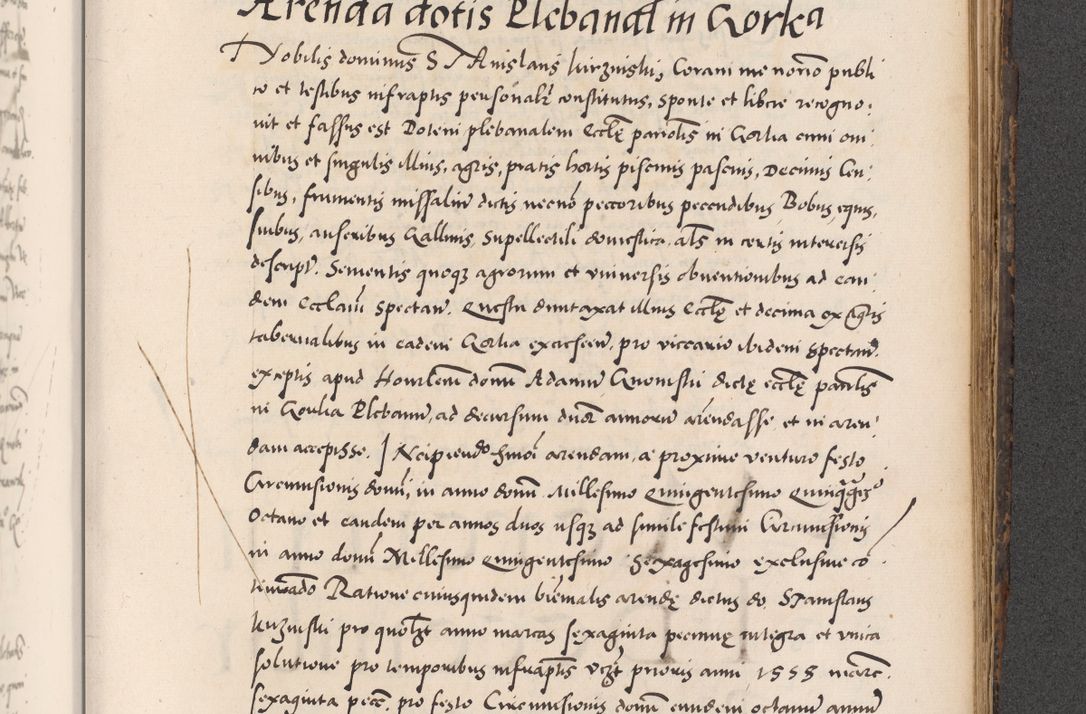 Arenda dotis Plebanal in Gorka
Nobilis dominus STAnislaus kurzniskj, Coram me norio publi
co et testibus infraptis personalr constitutus, sponte et libere recogno:
uit et fassus est Dotem plebanalem Eccle parrolis in Gorka cum om:
nibus et singulis illius, agris, pratis hortis piscinis pascuis, Decimis Cen:
sibus, frumentis missalium dictis necno peccoribus pecudibus Bobus, equis,
suibus, anseribus Gallinis, supellectili domestica, als in certis intercisis
descript. Sementis quoque agrorum et vniuersis obuentionibus ad ean:
dem Ecclam spectan. Questu duntaxat illius Eccle et decima ex agris
tabernalibus in eadem Gorka exciscen, pro viccario ibidem spectan.
exceptis apud Honorlem donum Adamum dicte eccle paralis
in Gorka Plebanum, ad decursum duor annorum arendasse, et in aren:
dam accepisse. INcipiendo hmoi arendam, a proxime venturo festo
Circumcisionis domi, in anno domi Millesimo Quingentesimo Quinqgsmo
Octauo et eandem per annos duos usque ad simile festum Circumcisionis
in anno domi Millesimo Quingentesimo Sexagesimo exclusiue co:
tinuado Ratione cuiusquidem biennalis arende dictus do. STanislaus
kurzniski pro quolzt anno marcas sexaginta pecunie integra et vnica
solutione pro temporibus infraptis vczt prioris anni 1558 marc.
sexaginta pece, pro festo Circumcisionis domi eiusdem octaui annum